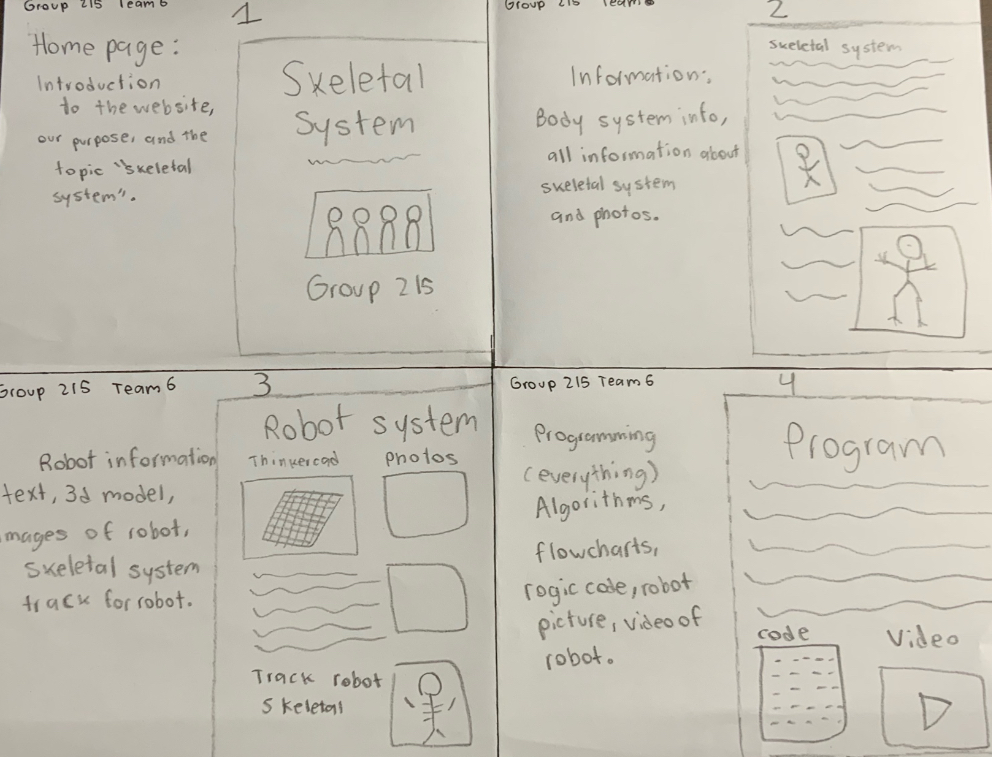 Group 215 Team 6
1
Home page:
Introduction
to the website,
our purpose, and the
topic "skeletal
system".
Skeletal
System
Group 215
Group 215 Team
2
Information:
Body system info,
all information about
skeletal system
and photos.
Skeletal system
Group 215 Team 6
3
Robot information
text, 3d model,
mages of robot,
skeletal system
track for robot.
Robot system
Thinkercad
Photos
Track robot
Skeletal
Group 215 Team 6
4
Programming
(everything)
Algorithms,
flowcharts,
rogic code, robot
picture, video of
robot.
Program
code
Video